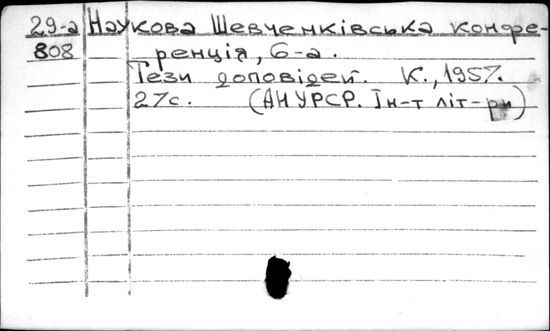 29-а Наукова Шевченківська конфе-
808 ренція, 6-а.
Тези доповідей. К., 1957.
27с. (АН УРСР. Їн-т літ-ри)